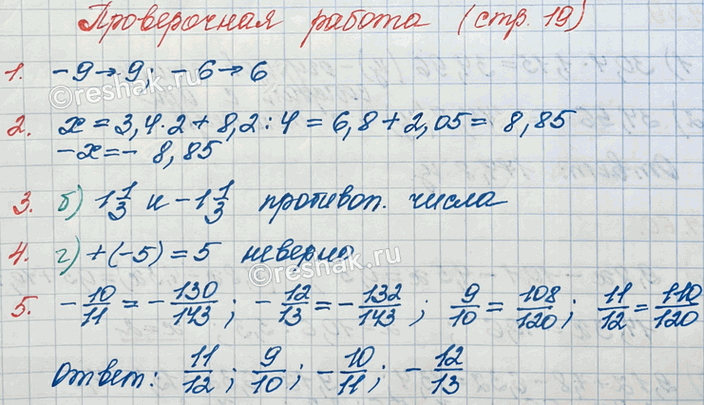 Проверочная работа (стр. 19)
1. -9→9; -6→6
2. x = 3,4·2 + 8,2:4 = 6,8 + 2,05 = 8,85
-x = - 8,85
3. б) 1 1/3 и -1 1/3 противоп. числа
4. г) +(-5) = 5 неверно
5. -10/11 = -130/143; -12/13 = -132/143; 9/10 = 108/120; 11/12 = 110/120
Ответ: 11/12; 9/10; -10/11; -12/13
©reshak.ru
©reshak.ru